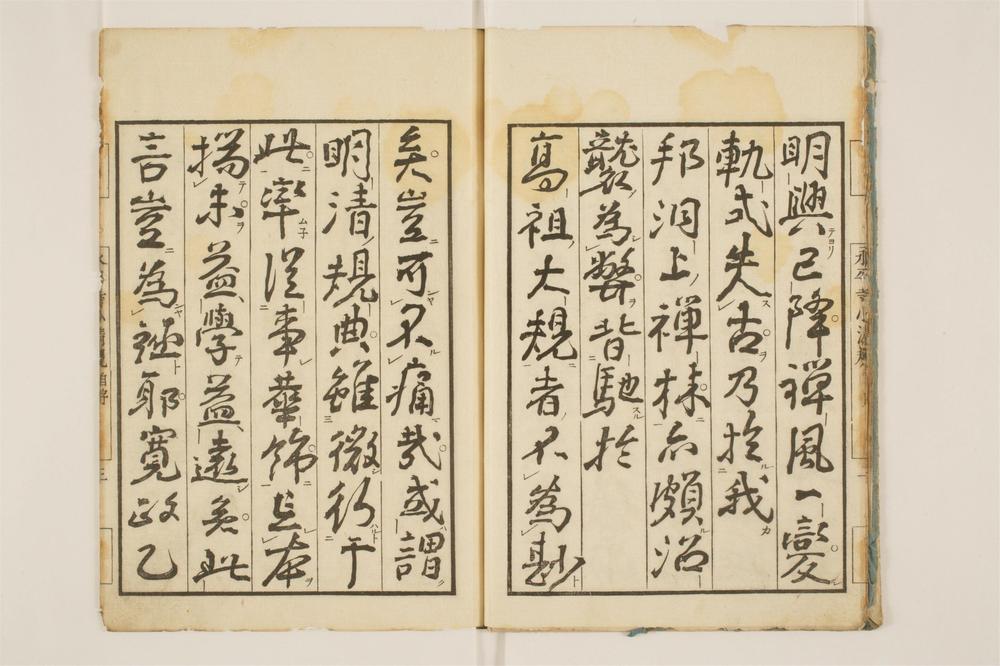 永平寺小清規
明興已降禪風一變
軌式失古乃於我
邦洞上禪林亦頗沿
襲為弊背馳於
高祖大規者不為尠
矣豈可不痛哉或謂
明清規典雖微行于
此率從事華飾忘本
揣末益學益遠矣此
言豈為誣耶寬政乙